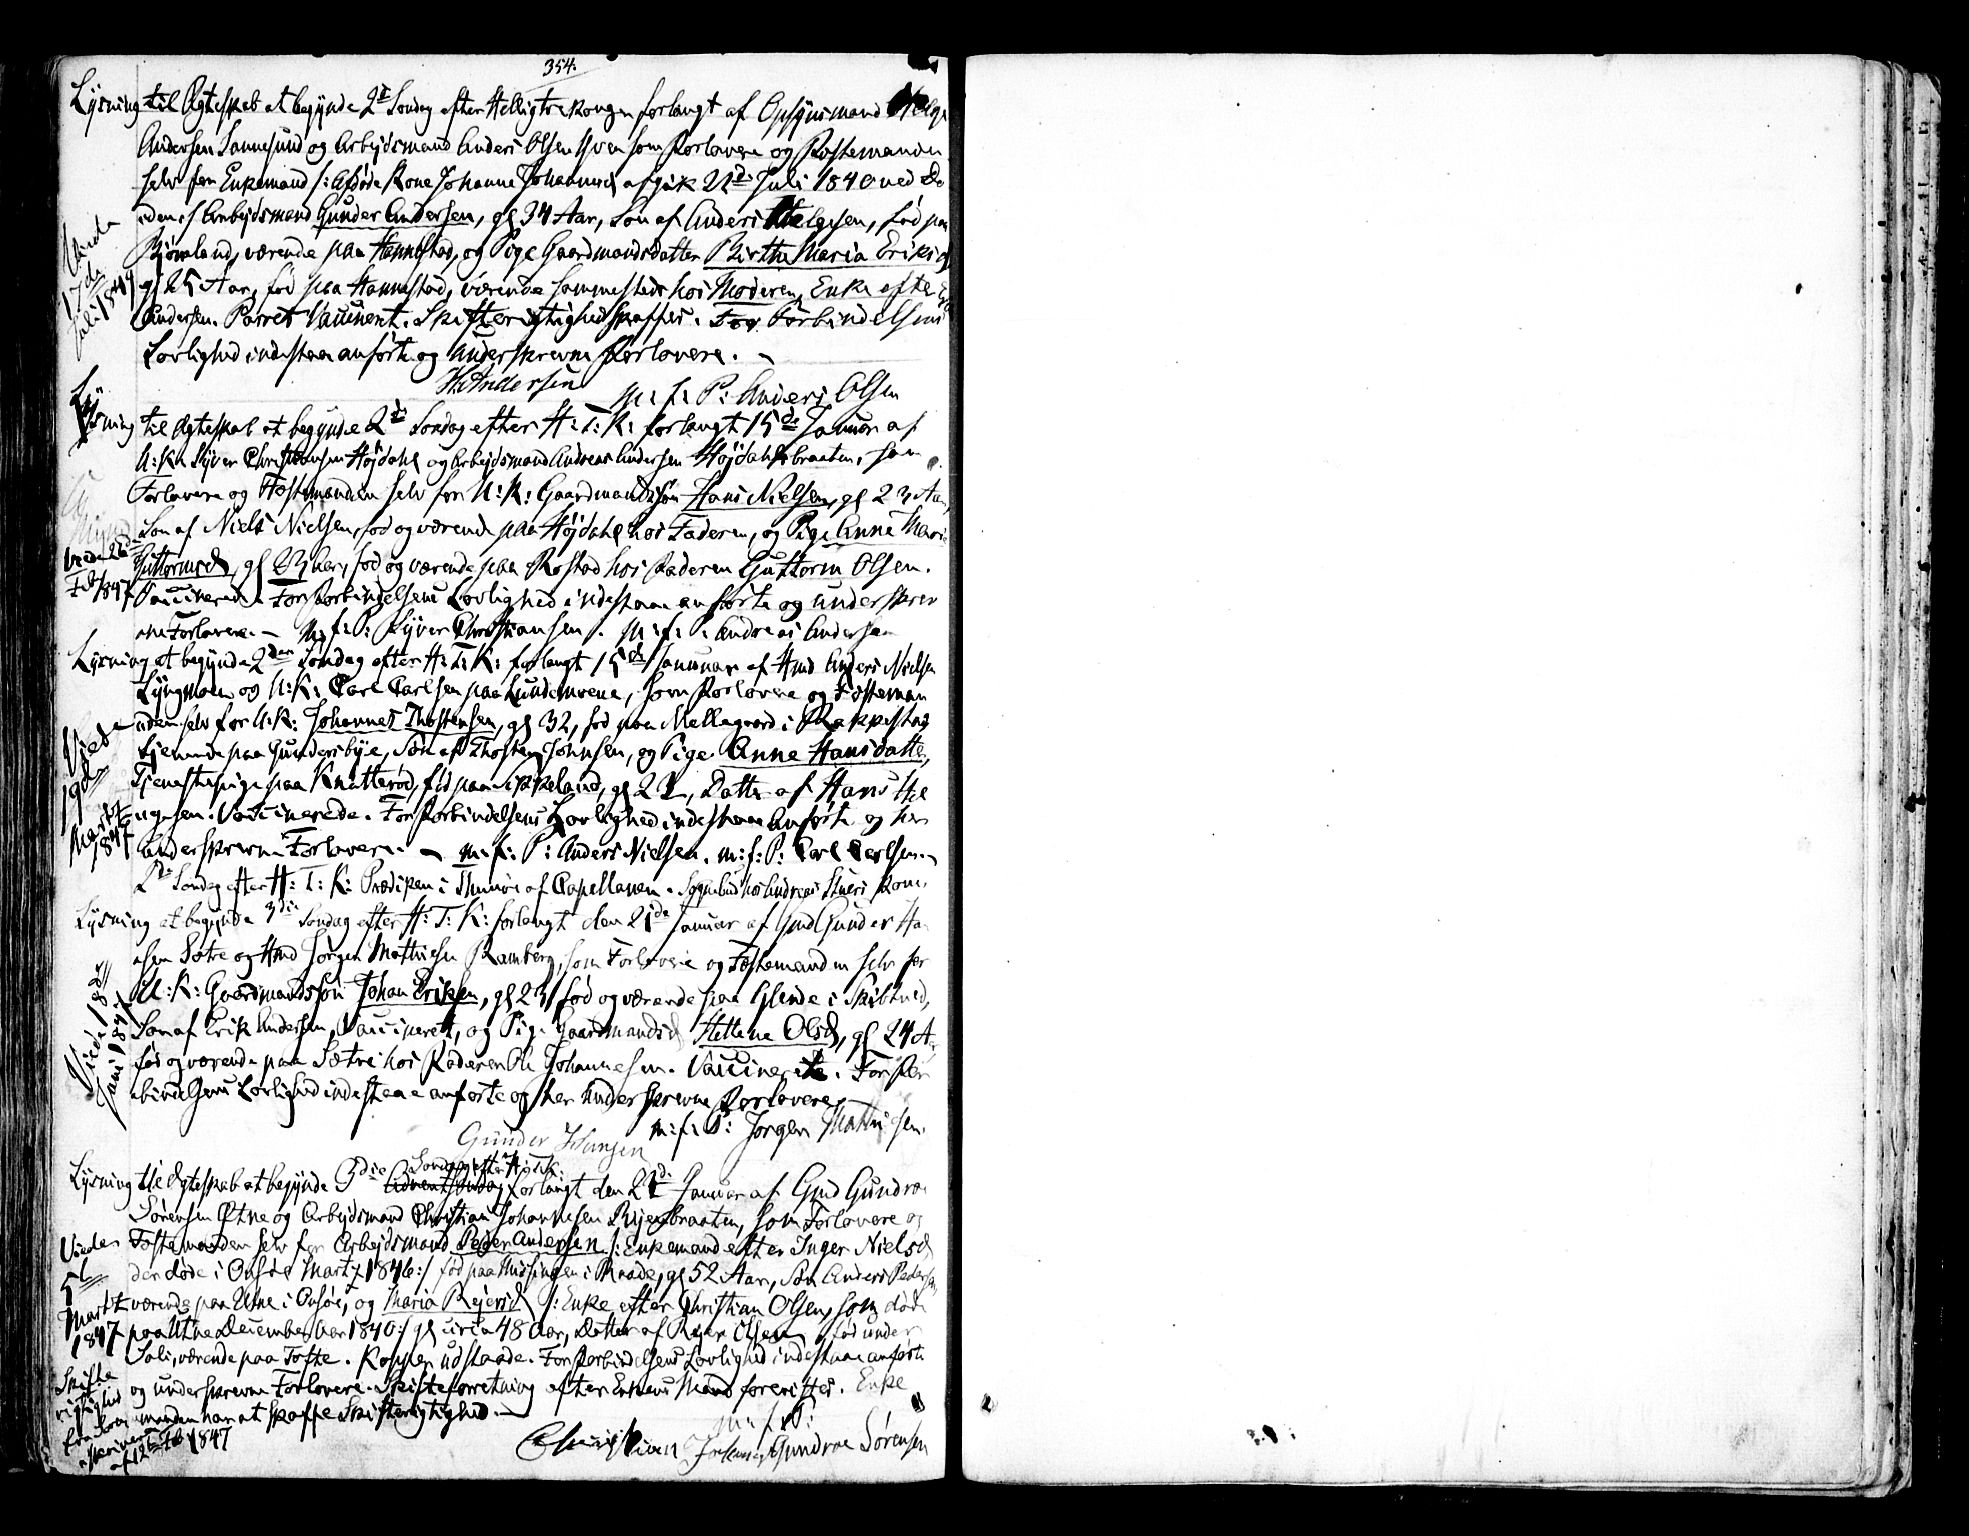 354.
Lysning til Ægteskab at begynde 2d Søndag efter Helligtrekonger forlangt af Opsynsmand Helge
Andersen Sannesund og Arbejdsmand Anders Olsen som Forlovere og Fæstemanden
selv for Enkemand /: Afdøde Kone Johanne afgik 21de Juli 1840 ved Dø
den :/ Arbejdsmand Gunder Andersen, gl 34 Aar, Søn af Anders Helgesen, fød paa
Bjørnland, værende paa Hannestad, og Pige Gaardmandsdatter Birthe Maria Eriksd
gl 25 Aar, fød paa Hannestad, værende sammesteds hos Moderen, Enke efter Erik
Andersen. Parret Vaccinert. Skifterigtighed skaffes. For Forbindelsens
Lovlighed indestaae anførte og underskrevne Forlovere. –
Viede 17de Juli 1847
H. Andersen m. f. P: Anders Olsen
Lysning til Ægteskab at begynde 2de Søndag efter H: T: K: forlangt 15de Januar af
U: K: Syver Christiansen Højdahl og Arbejdsmand Andreas Andersen Højdahlsbraaten, som
Forlovere og Fæstemanden selv for U: K: Gaardmandssøn Hans Nielsen, gl 23 Aar,
Søn af Niels Nielsen, fød og værende paa Højdahl hos Faderen, og Pige Anne Marie
Guttormsd, gl Aar, fød og værende paa Rostad hos Faderen Guttorm Olsen.
Vaccinerede. For Forbindelsens Lovlighed indestaae anførte og underskrev
ne Forlovere. – m. f. P: Syver Christiansen. m. f. P. Andreas Andersen
Viede 26de Feb 1847
Lysning at begynde 2den Søndag efter H: T: K: forlangt 15de Januar af Hmd Anders Nielsen
Lyngmoen og U: K: Carl Carlsen paa Lundemoene, som Forlovere og Fæsteman
den selv for U: K: Johannes Thostensen, gl 32, fød paa Mellegaard i Rakkestad
tjenende paa Gundersbye, Søn af Thosten Johnsen, og Pige Anne Hansdatter,
Tjenestepige paa Knatterød, fød paa Ekkeland, gl 21, Datter af Hans Hel
gesen. Vaccinerede. For Forbindelsens Lovlighed indestaae Anførte og her
underskrevne Forlovere. – m: f: P: Anders Nielsen. m: f: P: Carl Carlsen. –
Viede 19de Marts 1847
2de Søndag efter H: T: K: Prædiken i Thunøe af Capellanen. Sognebud hos Andreas Kone.
Lysning at begynde 3die Søndag efter H: T: K: forlangt den 21de Januar af Gmd Gunder Ha
nsen Sætre og Hmd Jørgen Mathisen Ramberg, som Forlovere og Fæstemanden selv for
U: K: Gaardmandssøn Johan Eriksen, gl 23, fød og værende paa Glende i Skibtved,
Søn af Erik Andersen, Vaccineret, og Pige Gaardmandsd Hellene Olsd, gl 24 Aar
fød og værende paa Sætre hos Faderen Ole Johannesen. Vaccinerede. For For
bindelsens Lovlighed indestaae anførte og her underskrevne Forlovere
Viede 18de Juni 1847
Gunder Hansen m: f: P: Jørgen Mathisen.
Lysning til Ægteskab at begynde 3die Søndag efter H: T: K: forlangt den 21de Januar af Gmd Gundroe
Sørensen Øtne og Arbejdsmand Christian Johannesen Ryersbraaten, som Forlovere og
Fæstemanden selv for Arbejdsmand Peder Andersen /: Enkemand efter Inger Nielsd
der døde i Onsøe Marts 1846 :/ fød paa Missingen i Raade, gl 52 Aar, Søn Anders Pedersen,
værende paa Utne i Onsøe, og Maria Rejersd /: Enke efter Christian Olsen, som døde
paa Utne December 1840 :/ gl circa 48 Aar, Datter af Rejer Olsen, fød under
Soli, værende paa Tofte. Kopper udstaade. For Forbindelsens Lovlighed indestaae anførte
og underskrevne Forlovere. Skifteforretning efter Enkens Mand forevistes. Enke
manden har at skaffe Skifterigtighed. –
Viede 5te Marts 1847
Skifte rigtighed fra Sorenskriveren af 12te Feb 1847
m. f. P:
Christian Johannesen Gundroe Sørensen